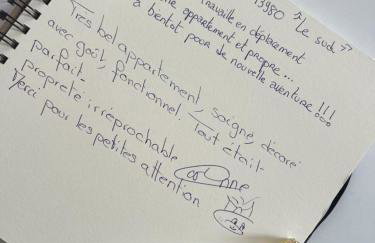 13980 "Le sud"
travaille en déplacement
appartement et propre...
à bientot pour de nouvelle aventure !!!
Très bel appartement, soigné, décoré
avec goût, fonctionnel. Tout était
parfait.
propreté irréprochable
Merci pour les petites attention